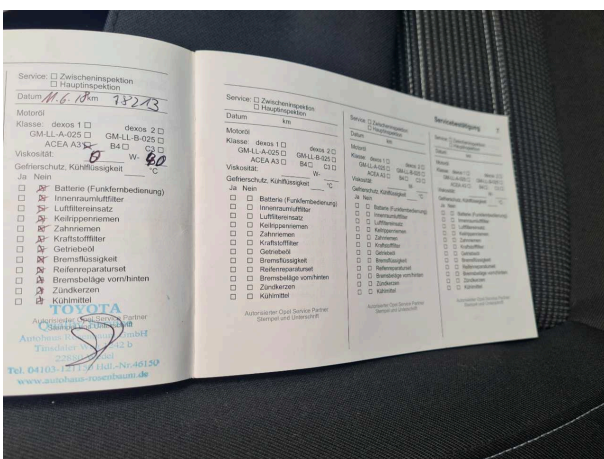 Service: ☐ Zwischeninspektion
☐ Hauptinspektion
Datum 11.6.18 km 78213
Motoröl
Klasse: dexos 1 ☐ dexos 2 ☐
GM-LL-A-025 ☐ GM-LL-B-025 ☐
ACEA A3 ☒ B4 ☐ C3 ☐
Viskosität: 0 W- 40
Gefrierschutz, Kühlflüssigkeit °C
Ja Nein
☐ ☒ Batterie (Funkfernbedienung)
☐ ☒ Innenraumluftfilter
☐ ☒ Luftfiltereinsatz
☐ ☒ Keilrippenriemen
☐ ☒ Zahnriemen
☐ ☒ Kraftstofffilter
☐ ☒ Getriebeöl
☐ ☒ Bremsflüssigkeit
☐ ☒ Reifenreparaturset
☐ ☒ Bremsbeläge vorn/hinten
☐ ☒ Zündkerzen
☐ ☒ Kühlmittel
TOYOTA
Autorisierter Opel Service Partner
Stempel und Unterschrift
Tel. 04103-121150 Hdl.-Nr.46150
www.autohaus-rosenbaum.de
Service: ☐ Zwischeninspektion
☐ Hauptinspektion
Datum km
Motoröl
Klasse: dexos 1 ☐ dexos 2 ☐
GM-LL-A-025 ☐ GM-LL-B-025 ☐
ACEA A3 ☐ B4 ☐ C3 ☐
Viskosität: W-
Gefrierschutz, Kühlflüssigkeit °C
Ja Nein
☐ ☐ Batterie (Funkfernbedienung)
☐ ☐ Innenraumluftfilter
☐ ☐ Luftfiltereinsatz
☐ ☐ Keilrippenriemen
☐ ☐ Zahnriemen
☐ ☐ Kraftstofffilter
☐ ☐ Getriebeöl
☐ ☐ Bremsflüssigkeit
☐ ☐ Reifenreparaturset
☐ ☐ Bremsbeläge vorn/hinten
☐ ☐ Zündkerzen
☐ ☐ Kühlmittel
Autorisierter Opel Service Partner
Stempel und Unterschrift
Service: ☐ Zwischeninspektion
☐ Hauptinspektion
Datum km
Motoröl
Klasse: dexos 1 ☐ dexos 2 ☐
GM-LL-A-025 ☐ GM-LL-B-025 ☐
ACEA A3 ☐ B4 ☐ C3 ☐
Viskosität: W-
Gefrierschutz, Kühlflüssigkeit °C
Ja Nein
☐ ☐ Batterie (Funkfernbedienung)
☐ ☐ Innenraumluftfilter
☐ ☐ Luftfiltereinsatz
☐ ☐ Keilrippenriemen
☐ ☐ Zahnriemen
☐ ☐ Kraftstofffilter
☐ ☐ Getriebeöl
☐ ☐ Bremsflüssigkeit
☐ ☐ Reifenreparaturset
☐ ☐ Bremsbeläge vorn/hinten
☐ ☐ Zündkerzen
☐ ☐ Kühlmittel
Autorisierter Opel Service Partner
Stempel und Unterschrift
Servicebestätigung
Service: ☐ Zwischeninspektion
☐ Hauptinspektion
Datum km
Motoröl
Klasse: dexos 1 ☐ dexos 2 ☐
GM-LL-A-025 ☐ GM-LL-B-025 ☐
ACEA A3 ☐ B4 ☐ C3 ☐
Viskosität: W-
Gefrierschutz, Kühlflüssigkeit °C
Ja Nein
☐ ☐ Batterie (Funkfernbedienung)
☐ ☐ Innenraumluftfilter
☐ ☐ Luftfiltereinsatz
☐ ☐ Keilrippenriemen
☐ ☐ Zahnriemen
☐ ☐ Kraftstofffilter
☐ ☐ Getriebeöl
☐ ☐ Bremsflüssigkeit
☐ ☐ Reifenreparaturset
☐ ☐ Bremsbeläge vorn/hinten
☐ ☐ Zündkerzen
☐ ☐ Kühlmittel
Autorisierter Opel Service Partner
Stempel und Unterschrift